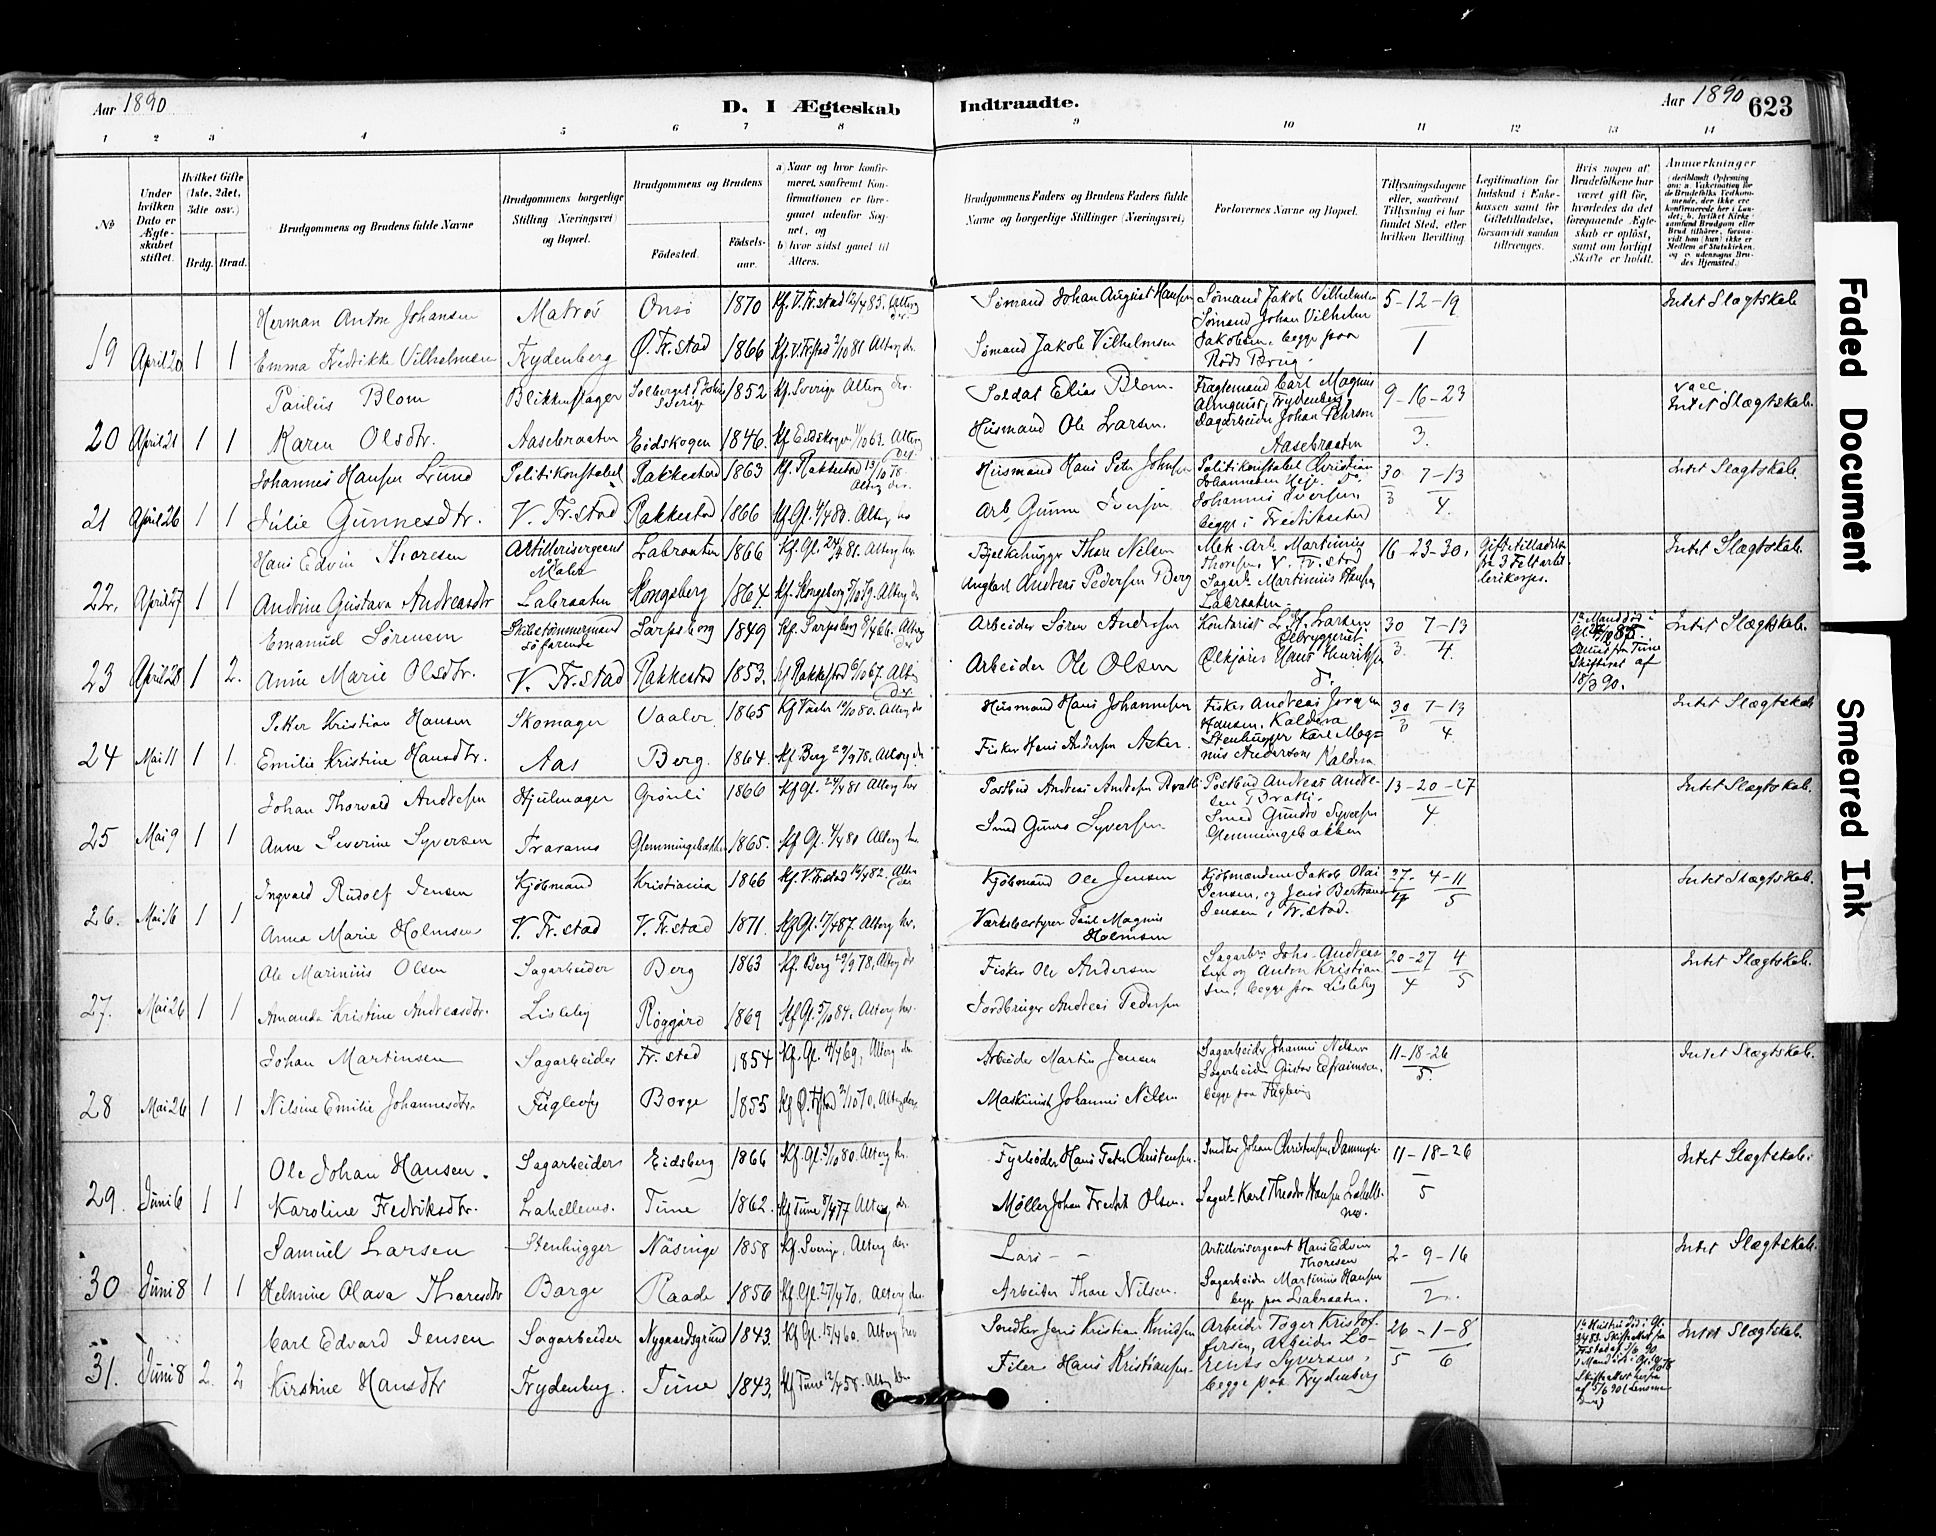 Aar 1890
D. I Ægteskab
Indtraadte.
Aar 1890
623
1 2 3 4 5 6 7 8 9 10 11 12 13 14
No
Under hvilken Dato er Ægteskabet stiftet.
Hvilket Gifte (1ste, 2det, 3die osv.)
Brdg. Brud.
Brudgommens og Brudens fulde Navne
Brudgommens borgerlige Stilling (Næringsvei) og Bopæl.
Brudgommens og Brudens
Fødested.
Fødselsaar.
a) Naar og hvor konfirmeret, saafremt Konfirmationen er foregaaet udenfor Sognet, og
b) hvor sidst gaaet til Alters.
Brudgommens Faders og Brudens Faders fulde Navne og borgerlige Stillinger (Næringsvei)
Forlovernes Navne og Bopæl.
Tillysningsdagene eller, saafremt Tillysning ei har fundet Sted, efter hvilken Bevilling.
Legitimation for Indskud i Enkekassen samt for Giftetilladelse, forsaavidt saadan tiltrænges.
Hvis nogen af Brudefolkene har været gift før, hvorledes da det foregaaende Ægteskab er opløst, samt om lovligt Skifte er holdt.
Anmærkninger
Herman Anton Johansen Matros Onsø 1870 Kf. V. Fr.stad 12/4 85. Alterg. der Sømand Johan August Hansen Sømand Jakob Vilhelmsen 5-12-19 Intet Slægtskab
19 April 20 1 1 Emma Fredrikke Vilhelmsen Trydenberg Ø. Fr.stad 1866 Kf. V. Frstad 2/10 81 Alterg. der. Sømand Jakob Vilhelmsen Sømand Johan Vilhelm Jakobsen, begge paa Røds Brug. 1
Paulus Blom Blikkenslager Sverige 1852 Kf. Sverige Alterg der. Soldat Elias Blom. Fragtemand Carl Magnus Almquist, Trydenberg 9-16-23 vacc. Intet Slægtskab.
20 April 21 1 1 Karen Olsdtr. Aasebraaten Eidskogen 1846. Kf Eidskogen 11/10 63. Alterg der. Husmand Ole Larsen. Dagarbeider Johan Pehrson Aasebraaten 3.
Johannes Hansen Lund Politikonstabel Rakkestad 1863 Kf. Rakkestad 13/10 78. Alterg der. Husmand Hans Peter Johnsen Politikonstabel Christian 30/3 7-13/4 Intet Slægtskab.
21 April 26 1 1 Julie Gunnesdtr. V. Fr.stad Rakkestad 1866 Kf Gl. 4/4 80. Alterg. her Arb. Gunne Iversen Johannes Iversen, begge i Fredrikstad
Hans Edvin Thoresen Artillerisergeant Maler Labraaten 1866 Kf. Gl. 24/4 81. Alterg her. Bjelkehugger Thore Nilsen Mek. Arb. Martinius Thoresen, V. Fr.stad 16-23-30. Giftetilladelse fra 3 Feltartillerikorps. Intet Slægtskab.
22. April 27 1 1 Andrine Gustava Andreasdtr Labraaten Kongsberg 1864. Kf. Kongsberg Alterg der Andreas Pedersen Berg Sagarb. Martinius Hansen, Labraaten.
Emanuel Sørensen Skibstømmermand søfarende Sarpsborg 1849 Kf. Sarpsborg 8/4 66. Alterg der Arbeider Søren Andersen Kontorist L. H. Larsen 30/3. 7-13/4 Intet Slægtskab.
23 April 28 1 2. Anne Marie Olsdtr. V. Fr.stad Rakkestad 1853. Kf Rakkestad 6/10 67. Alterg der. Arbeider Ole Olsen Ølkjører Hans Henriksen Skifteret af 18/3 90.
Petter Kristian Hansen Skomager Vaaler 1865 Kf Vaaler 10/10 80. Alterg der Husmand Hans Johannesen Fisker Andreas Jørgen Hansen, Kaldera 30/3 7-13/4 Intet Slægtskab
24 Mai 11 1 1. Emilie Kristine Hansdtr. Aas Berg. 1864. Kf. Berg 29/9 78. Alterg der Fisker Hans Andersen Asker. Stenhugger Karl Magnus Andersson Kaldera
Johan Thorvald Andresen Hjulmager Grønli 1866 Kf Gl. 24/4 81 Alterg her Postbud Andreas Andresen Bratli Postbud Andreas Andresen Bratli. 13-20-27/4 Intet Slægtskab.
25 Mai 9 1 1 Anne Severine Syversen Traranes Glemmingebakken 1865. Kf Gl. 4/4 80 Alterg her. Smed Gunes Syversen Smed Gunerø Syversen Glemmingebakken
Ingvald Rudolf Jensen Kjøbmand Kristiania 1866 Kf. V. Fr.stad 16/4 82. Alterg der Kjøbmand Ole Jensen Kjøbmændene Jakob Olai Jensen, og Jens Bertrand Jensen i Fr.stad. 27/4 4-11/5 Intet Slægtskab.
26. Mai 16 1 1 Anna Marie Holmsen V. Fr.stad V. Fr.stad 1871. Kf Gl. 17/4 87. Alterg. her. Værksbestyrer Paul Magnus Holmsen
Ole Marinius Olsen Sagarbeider Berg 1863 Kf. Berg 29/9 78, Alterg der Fisker Ole Andersen Sagarb. Johs. Andreassen og Anton Kristiansen, begge paa Lisleby 20-27/4 4/5 Intet Slægtskab.
27. Mai 26 1 1 Amanda Kristine Andreasdtr. Lisleby Røggård 1869 Kf Gl. 5/10 84. Alterg her. Jordbruger Andreas Pedersen
Johan Martinsen Sagarbeider Fr. stad 1854 Kf. Gl. 4/4 69, Alterg her Arbeider Martin Jensen Sagarbeider Johannes Nilsen 11-18-26/5. Intet Slægtskab.
28 Mai 26 1 1 Nilsine Emilie Johannesdtr. Fuglevig Borge 1855 Kf Ø. Frstad 2/10 70. Alterg der. Maskinist Johannes Nilsen Sagarbeider Gustav Efraimsen, begge paa Fuglevig
Ole Johan Hansen. Sagarbeider Eidsberg 1866 Kf. Gl. 3/10 80. Alterg her. Fyrbøder Hans Peter Christensen. Snedker Johan Christensen, 11-18-26 Intet Slægtskab.
29. Juni 6 1 1 Karoline Fredriksdtr. Lahellens. Tune 1862. Kf Tune 8/4 77 Alterg der. Møller Johan Fredrik Olsen. Sagarb. Karl Theodor Hansen 5
Samuel Larsen Stenhugger Näsinge 1858 Kf. Sverige, Alterg der. Lars - - Artillerisergeant Hans Edvin Thoresen 2-9-16 Intet Slægtskab.
30 Juni 8 1 1 Helmine Olava Thoresdtr Borge Raade 1856 Kf. Gl. 27/4 70. Alterg der. Arbeider Thore Nilsen. Sagarbeider Martinius Hansen begge paa Labraaten. 2
Carl Edvard Jensen Sagarbeider Nygaardsgrund 1843. Kf Gl. 15/4 60. Alterg her Snedker Jens Kristian Knudsen Arbeider Tøger Kristoffersen, Arbeider Lorents Syversen, begge paa Trydenberg 26/5 -1-8/6 Intet Slægtskab.
31. Juni 8 2. 2 Kirstine Hansdtr Trydenberg. Tune 1843. Kf Tune 12/4 58. Alterg der Filer Hans Kristiansen
Faded Document
Smeared Ink